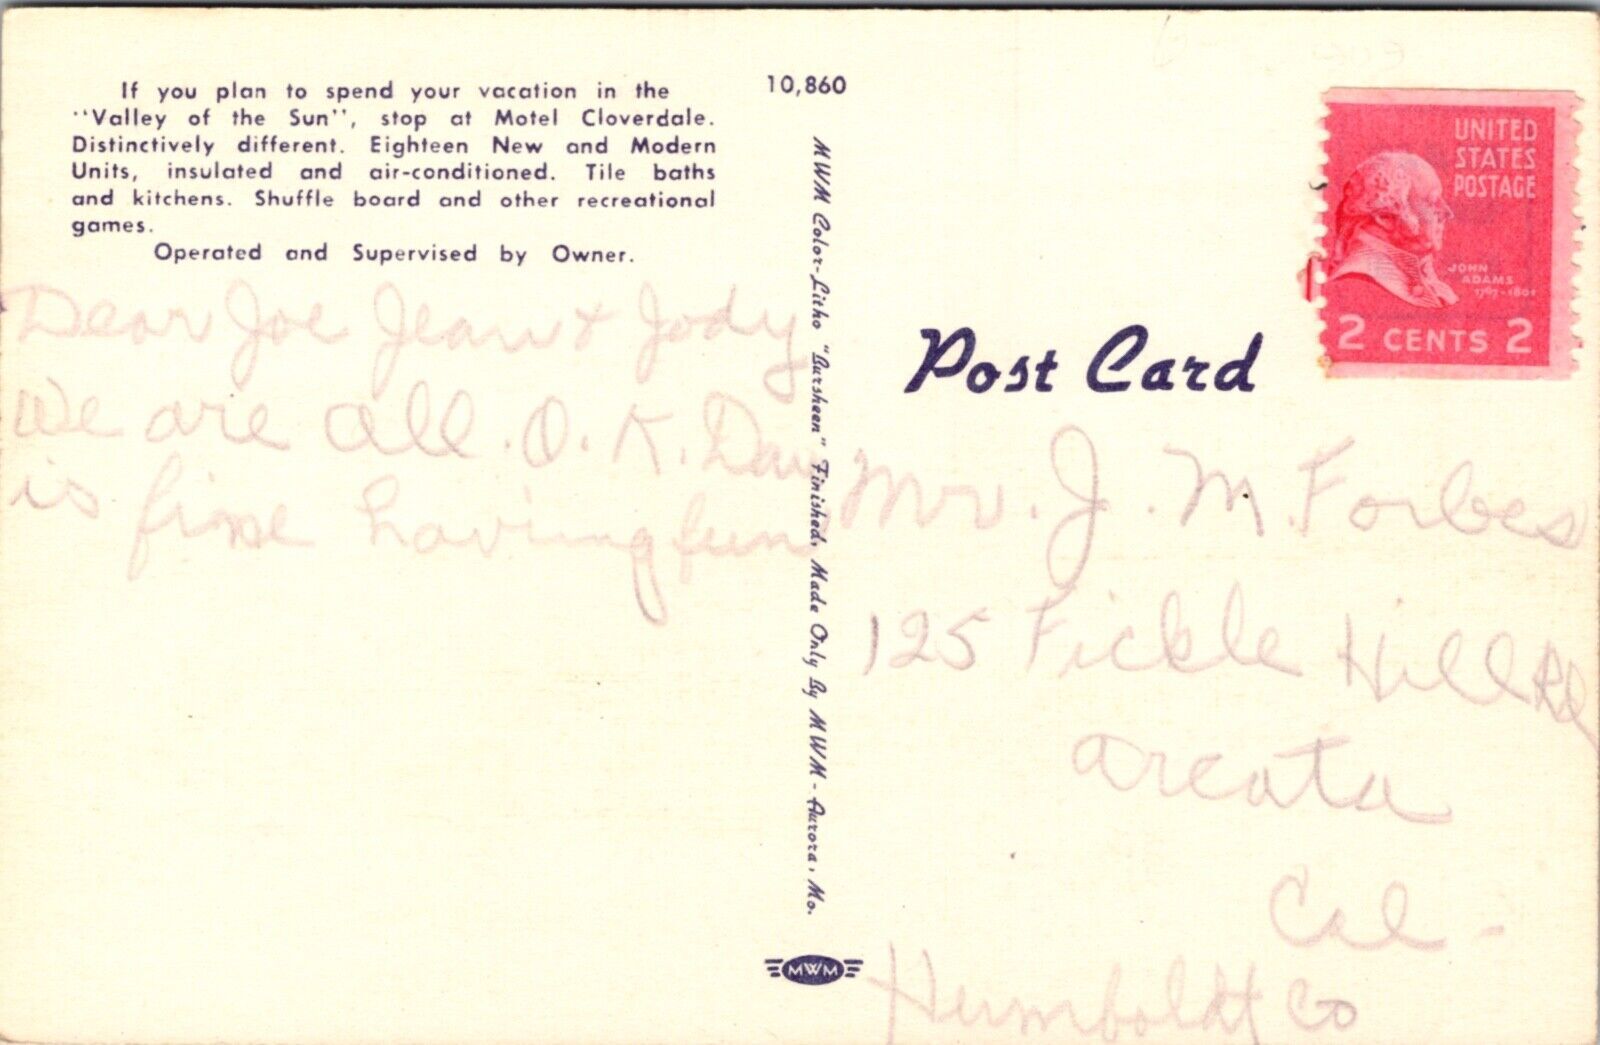 If you plan to spend your vacation in the
"Valley of the Sun", stop at Motel Cloverdale.
Distinctively different. Eighteen New and Modern
Units, insulated and air-conditioned. Tile baths
and kitchens. Shuffle board and other recreational
games.
Operated and Supervised by Owner.
Dear Joe Jean & Jody
We are all. O. K.
is fine having fun
10,860
MWM Color-Litho "Bursheen" Finished, Made Only By MWM - Aurora, Mo.
MWM
UNITED
STATES
POSTAGE
JOHN
ADAMS
1797-1801
2 CENTS 2
Post Card
Mr. J. M. Forbes
125 Fickle Hill Rd
Arcata
Cal -
Humboldt Co